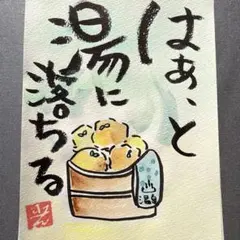 はぁ、と
湯に
落ちる